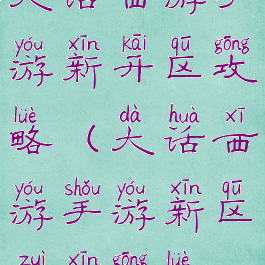 大话西游手
yóu xīn kāi qū gōng
游新开区攻
lüè dà huà xī
略（大话西
yóu shǒu yóu xīn qū
游手游新区
zuì xīn gōng lüè